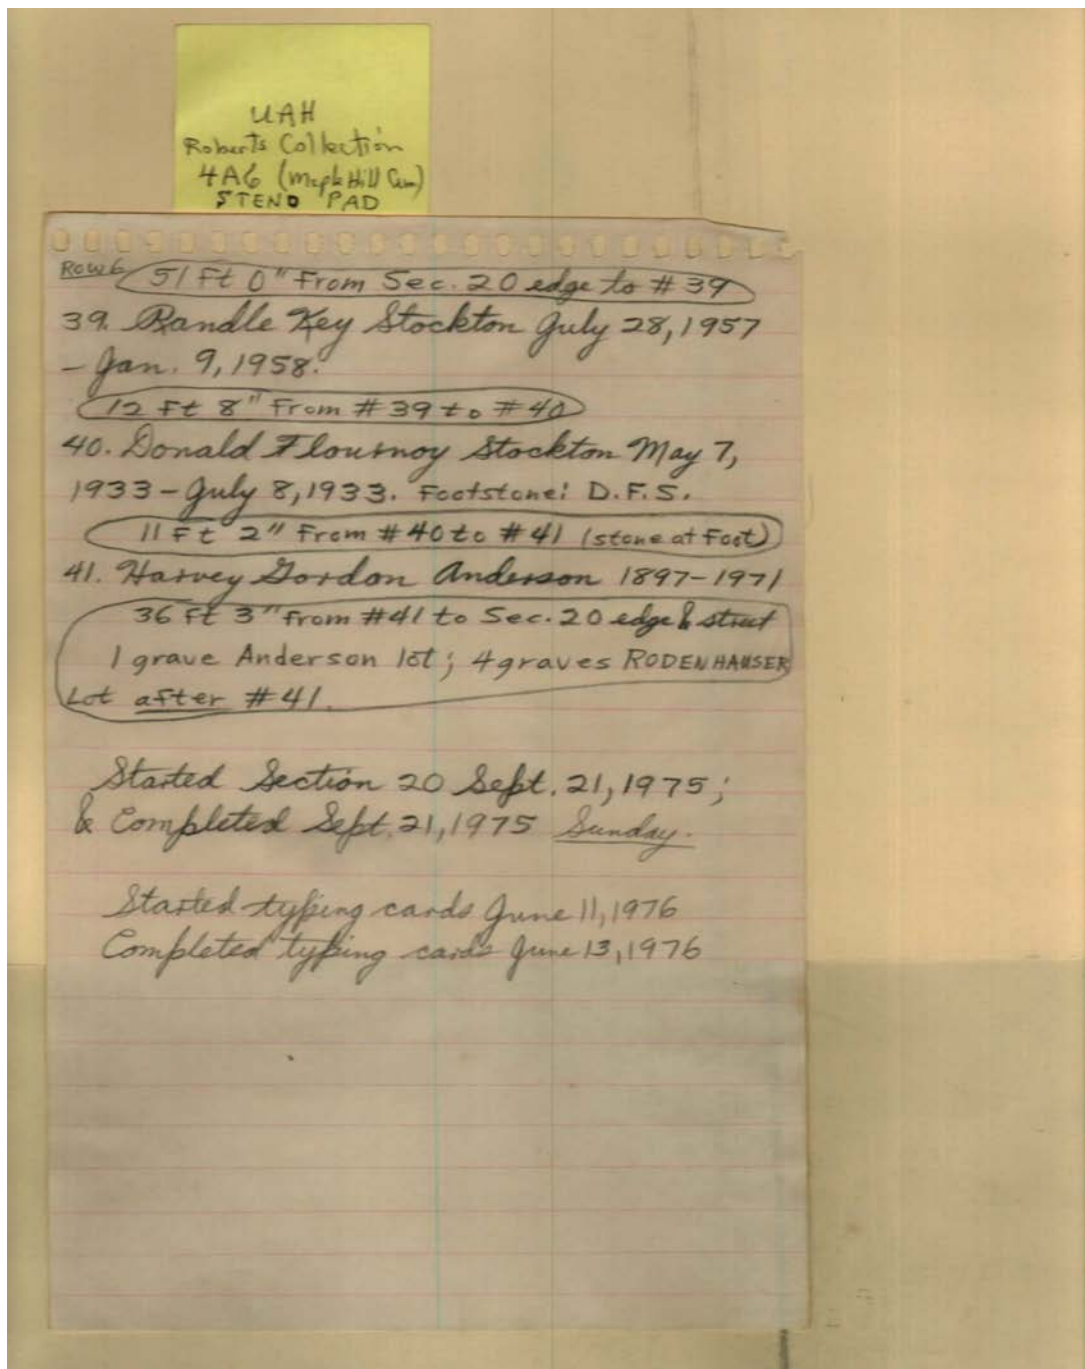 UAH
Roberts Collection
4A6 (Maple Hill Cem)
STENO PAD
Row 6 51 Ft 0" From Sec. 20 edge to # 39
39. Randle Key Stockton July 28, 1957
- Jan. 9, 1958.
12 Ft 8" From # 39 to # 40
40. Donald Flournoy Stockton May 7,
1933 - July 8, 1933. Footstone: D.F.S.
11 Ft 2" From # 40 to # 41 (stone at Foot)
41. Harvey Gordon Anderson 1897-1971
36 Ft 3" From #41 to Sec. 20 edge & street
1 grave Anderson lot; 4 graves RODENHAUSER
Lot after #41.
Started Section 20 Sept. 21, 1975;
& Completed Sept. 21, 1975 Sunday.
Started typing cards June 11, 1976
Completed typing cards June 13, 1976